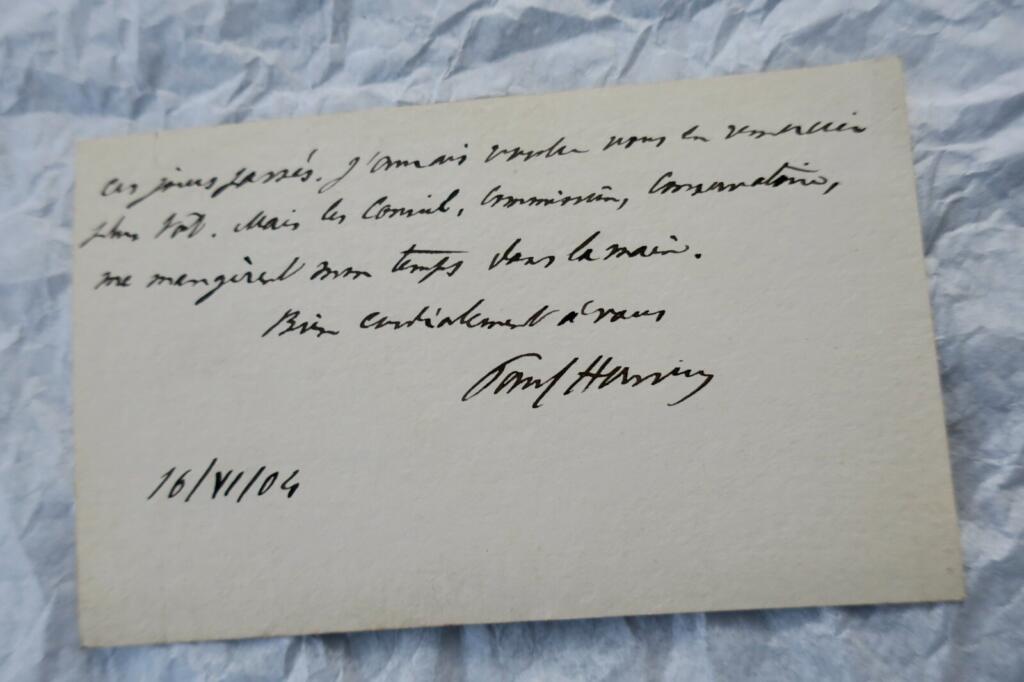 ces jours passés. J'aurais voulu vous en remercier
plus tôt. Mais les Conseil, Commission, Conservatoire,
me mangèrent mon temps dans la main.
Bien cordialement à vous
Paul
16/VI/04